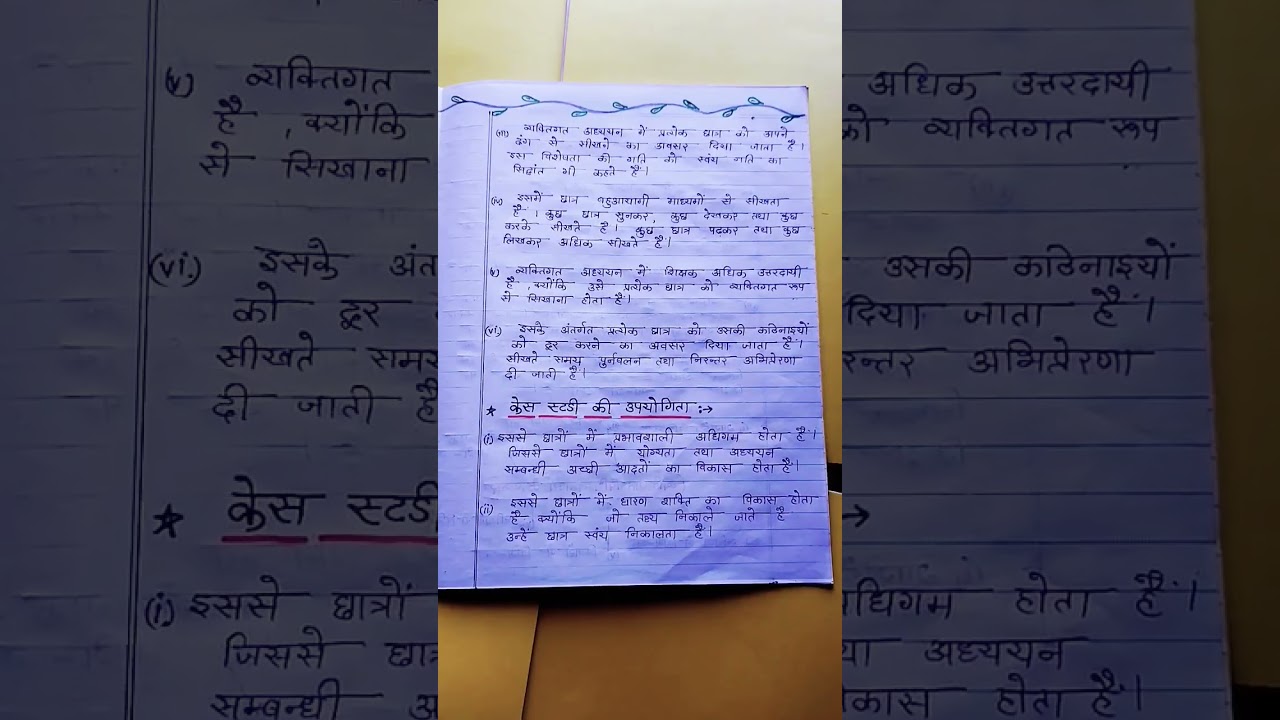 (iii) व्यक्तिगत अध्ययन में प्रत्येक छात्र को अपने
ढंग से सीखने का अवसर दिया जाता है।
इस विशेषता की गति को स्वंय गति का
सिद्धांत भी कहते हैं।
(iv) इसमें छात्र बहुआयामी माध्यमों से सीखता
है। कुछ छात्र सुनकर, कुछ देखकर तथा कुछ
करके सीखते हैं। कुछ छात्र पढ़कर तथा कुछ
लिखकर अधिक सीखते हैं।
(v) व्यक्तिगत अध्ययन में शिक्षक अधिक उत्तरदायी
है, क्योंकि उसे प्रत्येक छात्र को व्यक्तिगत रूप
से सिखाना होता है।
(vi) इसके अंतर्गत प्रत्येक छात्र को उसकी कठिनाइयों
को दूर करने का अवसर दिया जाता है।
सीखते समय पुर्नबलन तथा निरन्तर अभिप्रेरणा
दी जाती है।
* केस स्टडी की उपयोगिता :→
(i) इससे छात्रों में प्रभावशाली अधिगम होता है।
जिससे छात्रों में योग्यता तथा अध्ययन
सम्बन्धी अच्छी आदतों का विकास होता है।
(ii) इससे छात्रों में धारण शक्ति का विकास होता
है क्योंकि जो तथ्य निकाले जाते है
उन्हें छात्र स्वंय निकालता है।